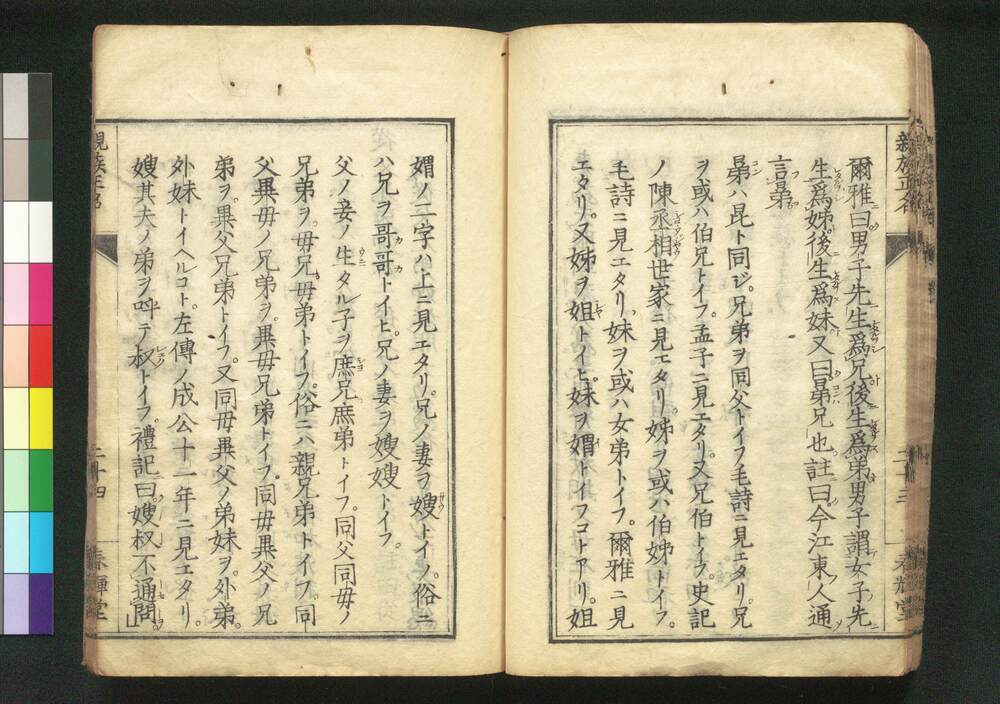 爾雅曰男子先生爲兄後生爲弟男子謂女子先
生爲姊後生爲妹又曰晜兄也註曰今江東人通
言晜
晜ハ昆ト同ジ。兄弟ヲ同父トイフ毛詩ニ見エタリ。兄
ヲ或ハ伯兄トイフ。孟子ニ見エタリ。又兄伯トイフ。史記
ノ陳丞相世家ニ見エタリ。姊ヲ或ハ伯姊トイフ。
毛詩ニ見エタリ。妹ヲ或ハ女弟トイフ。爾雅ニ見
エタリ。又姊ヲ姐トイヒ。妹ヲ媦トイフコトアリ。姐
親族正名
二十三
春輝堂
媦ノ二字ハ上ニ見エタリ。兄ノ妻ヲ嫂トイフ。俗ニ
ハ兄ヲ哥哥トイヒ。兄ノ妻ヲ嫂嫂トイフ。
父ノ妾ノ生タル子ヲ庶兄庶弟トイフ。同父同毋ノ
兄弟ヲ。毋兄毋弟トイフ。俗ニハ親兄弟トイフ。同
父異毋ノ兄弟ヲ。異毋兄弟トイフ。同毋異父ノ兄
弟ヲ。異父兄弟トイフ。又同毋異父ノ弟妹ヲ。外弟。
外妹トイヘルコト。左傳ノ成公十一年ニ見エタリ。
嫂其夫ノ弟ヲ呼テ叔トイフ。禮記曰嫂叔不通問。」
親族正名
二十四
春輝堂